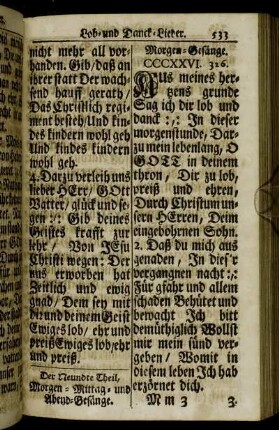 Lob- und Danck-Lieder. 533
nicht mehr all vor-
handen. Gib/daß an
ihrer statt Der wach-
send hauff gerath/
Das Christlich regi-
ment besteh/Und kin-
des kindern wohl geh
Und kindes kindern
wohl geh.
4. Darzu verleih uns
lieber HErr/ GOtt
Vatter/ glück und se-
gen :/: Gib deines
Geistes krafft zur
lehr/ Von JEsu
Christi wegen: Der
uns erworben hat
Zeitlich und ewig
gnad/ Dem sey mit
dir und deinem Geist
Ewigs lob/ ehr und
preiß Ewigs lob/ehr
und preiß.
Der Neundte Theil,
Morgen- Mittag- und
Abend-Gesänge.
Morgen-Gesänge.
CCCXXVI. 326.
AUs meines her-
tzens grunde
Sag ich dir lob und
danck :/: In dieser
morgenstunde, Dar-
zu mein lebenlang, O
GOTT in deinem
thron, Dir zu lob,
preiß und ehren,
Durch Christum un-
sern HErren, Deim
eingebohrnen Sohn.
2. Daß du mich aus
genaden, In dies'r
vergangnen nacht :/:
Für gfähr und allem
schaden Behütet und
bewacht Ich bitt
demüthiglich Wollst
mir mein sünd ver-
geben/ Womit in
diesem leben Jch hab
erzörnet dich.
M m 3 3.